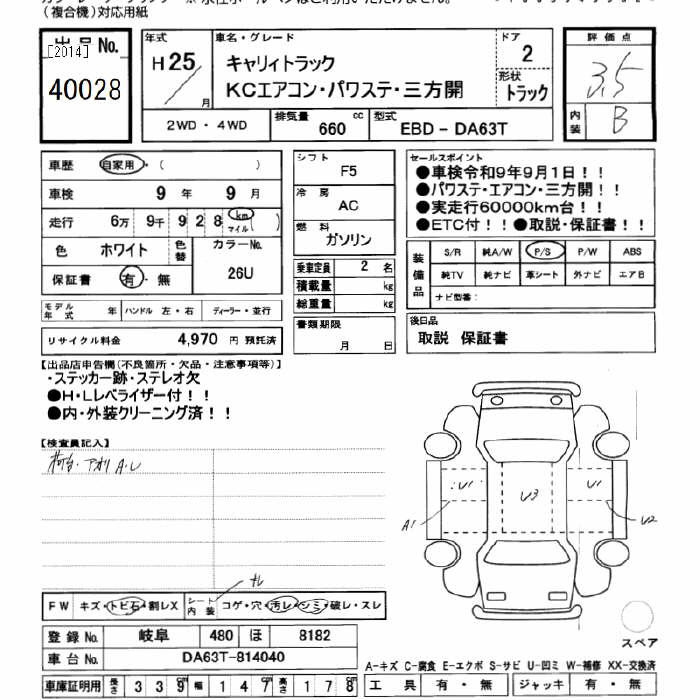 (複合機)対応用紙
出品No.
[2014]
40028
年式
H25
月
車名・グレード
キャリィトラック
KCエアコン・パワステ・三方開
ドア
2
形状
トラック
評価点
3.5
内装
B
2WD・4WD
排気量
660
cc
型式
EBD-DA63T
車歴
自家用・(
)
車検
9年 9月
走行
6万 9千 9 2 8
km
マイル
( )
色
ホワイト
色替
カラーNo.
26U
保証書
有・無
モデル年式
年
ハンドル 左・右
ディーラー・並行
リサイクル料金 4,970 円 預託済
シフト
F5
冷房
AC
燃料
ガソリン
乗車定員 2 名
積載量 kg
総重量 kg
書類期限
月 日
セールスポイント
●車検令和9年9月1日!!
●パワステ・エアコン・三方開!!
●実走行60000km台!!
●ETC付!!●取説・保証書!!
装備品
S/R 純A/W P/S P/W ABS
純TV 純ナビ 革シート 外ナビ エアB
ナビ型番:
後日品
取説 保証書
【出品店申告欄(不良箇所・欠品・注意事項等)】
・ステッカー跡・ステレオ欠
●H・Lレベライザー付!!
●内・外装クリーニング済!!
【検査員記入】
荷台・アオリ A・U
U1
U3
U1
A1
U2
スレ
FW キズ・トビ石・割レX
シート内装
コゲ・穴・汚レ・シミ・破レ・スレ
登録No. 岐阜 480 ほ 8182
車台No. DA63T-814040
車庫証明用 長さ 3 3 9 幅 1 4 7 高さ 1 7 8
スペア
A-キズ C-腐食 E-エクボ S-サビ U-凹ミ W-補修 XX-交換済
工具 有・無 ジャッキ 有・無